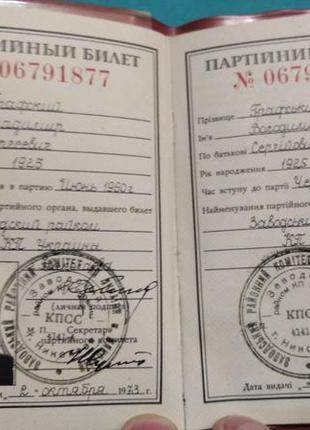 ИЙНЫЙ БИЛЕТ
06791877
Графский
адимир
геевич
1925
я в партию Июнь 1960г
артийного органа, выдавшего билет
дский райком
КП Украина
(личная подпись)
П. Секретарь
партийного комитета
КПСС
2 октября 1973 г.
ПАРТІЙНИ
№ 067
Прізвище Графськ
Ім'я Володими
По батькові Сергійов
Рік народження 1925
Час вступу до партії Че
Найменування партійно
Заводськ
КП
Дата видачі